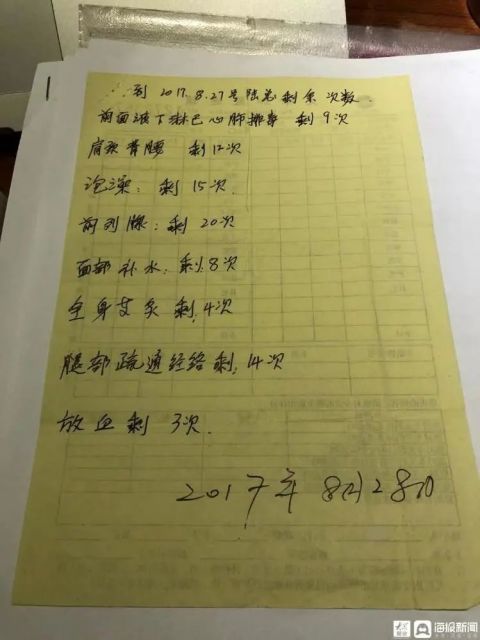 到 2017.8.27号陆总剩余次数.
前面液下淋巴心肺排毒 剩9次
肩颈背腰 剩12次
泡澡: 剩 15次.
前列腺: 剩 20次
面部补水: 剩: 8次
全身艾灸 剩: 4次
腿部疏通经络剩: 14次
放血剩 3次.
2017年 8月28日
海报新闻